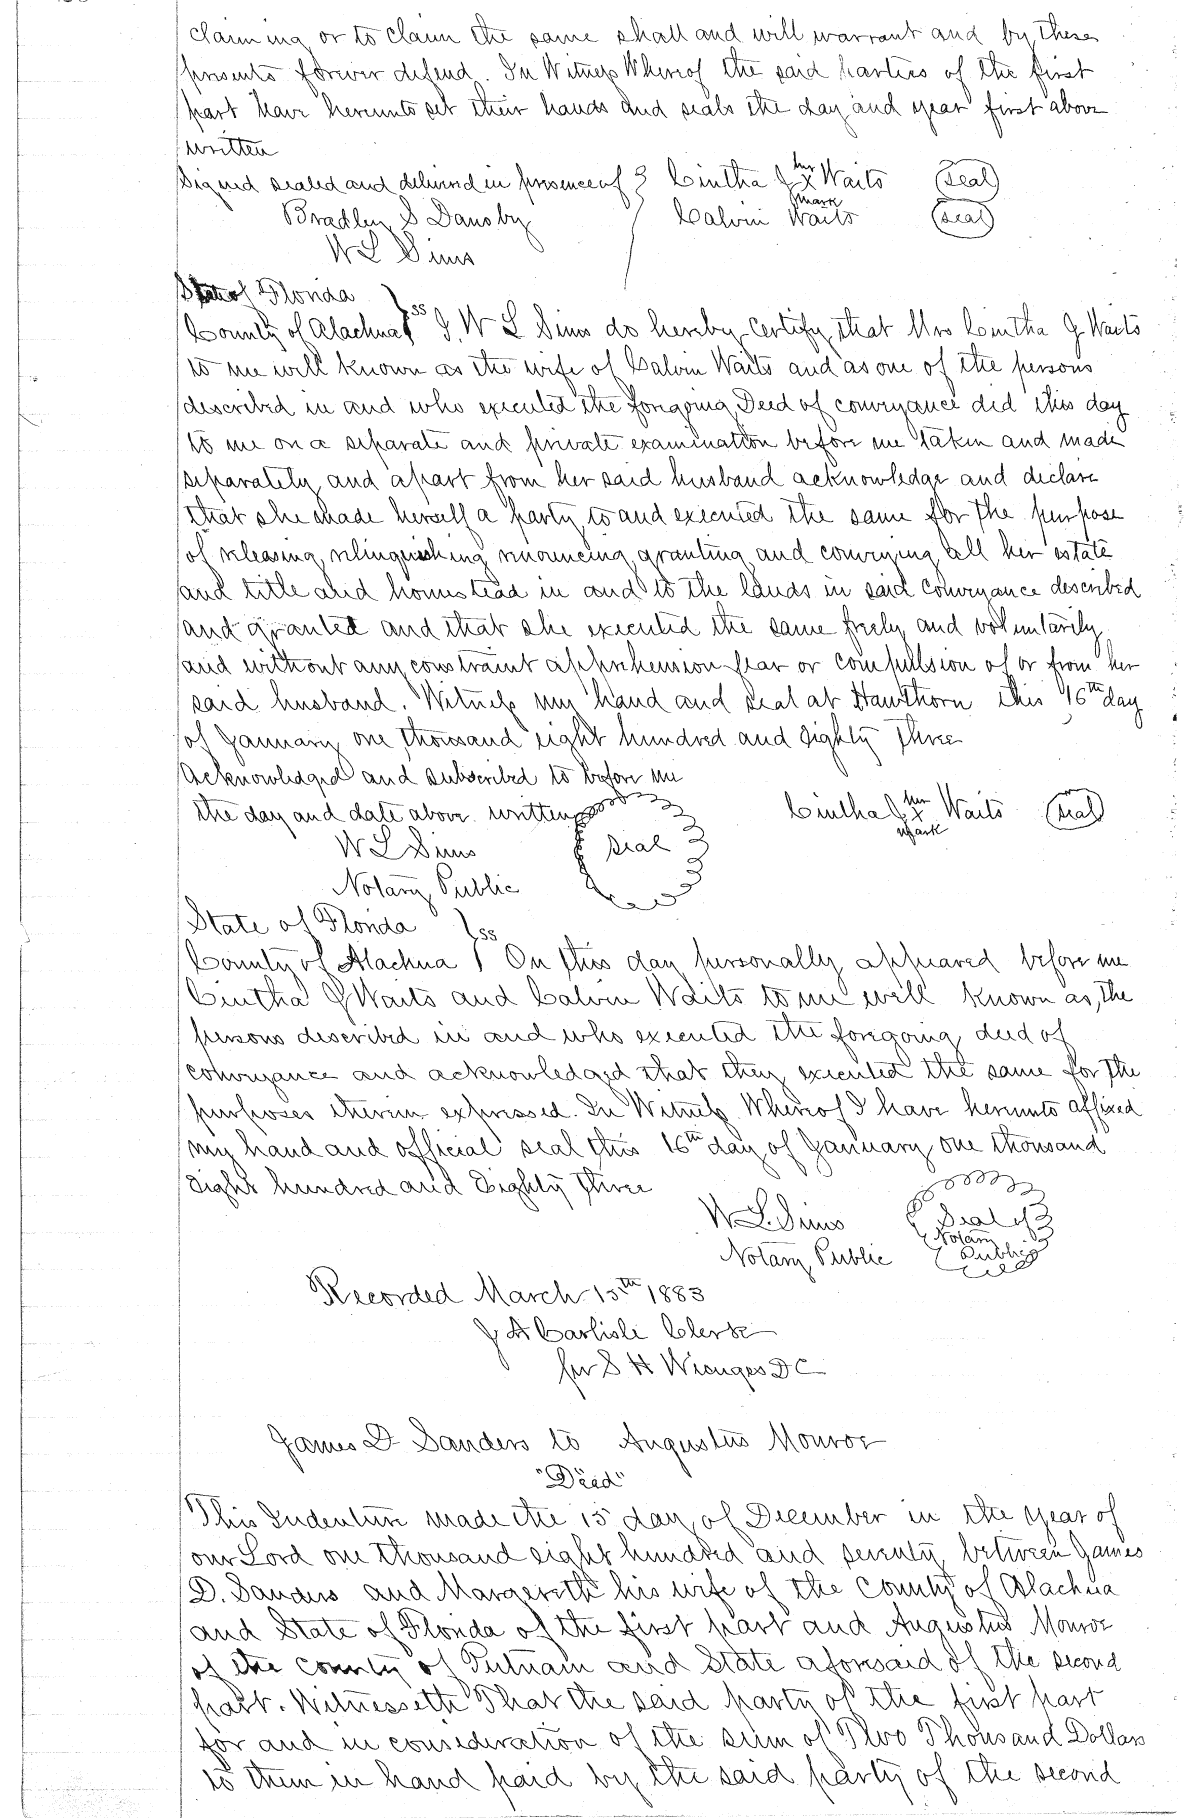 claiming or to claim the same shall and will warrant and by these
presents forever defend. In Witness Whereof the said parties of the first
part have hereunto set their hands and seals the day and year first above
written
Signed sealed and delivered in presence of } Cintha J her X mark Waits (seal)
Bradley S Dansby Calvin Waits (seal)
W L Sims
State of Florida
County of Alachua } ss I, W L Sims do hereby certify that Mrs Cintha J Waits
to me well known as the wife of Calvin Waits and as one of the persons
described in and who executed the foregoing Deed of conveyance did this day
to me on a separate and private examination before me taken and made
separately and apart from her said husband acknowledge and declare
that she made herself a party to and executed the same for the purpose
of releasing relinquishing renouncing granting and conveying all her estate
and title and homestead in and to the lands in said conveyance described
and granted and that she executed the same freely and voluntarily
and without any constraint apprehension fear or compulsion of or from her
said husband. Witness my hand and seal at Hawthorn this 16th day
of January one thousand eight hundred and Eighty Three
Acknowledged and subscribed to before me
the day and date above written Cintha J her X mark Waits (seal)
W L Sims seal
Notary Public
State of Florida
County of Alachua } ss On this day personally appeared before me
Cintha J Waits and Calvin Waits to me well known as the
persons described in and who executed the foregoing deed of
conveyance and acknowledged that they executed the same for the
purposes therein expressed. In Witness Whereof I have hereunto affixed
my hand and official seal this 16th day of January one thousand
Eight hundred and Eighty Three
W L. Sims Seal of
Notary Public Notary Public
Recorded March 15th 1883
J A Carlisle Clerk
per S H Wienges DC
James D Sanders to Augustus Monroe
"Deed"
This Indenture made the 15 day of December in the year of
our Lord one thousand eight hundred and seventy between James
D. Sanders and Margereth his wife of the County of Alachua
and State of Florida of the first part and Augustus Monroe
of the county of Putnam and State aforesaid of the second
part. Witnesseth That the said party of the first part
for and in consideration of the sum of Two Thousand Dollars
to them in hand paid by the said party of the second